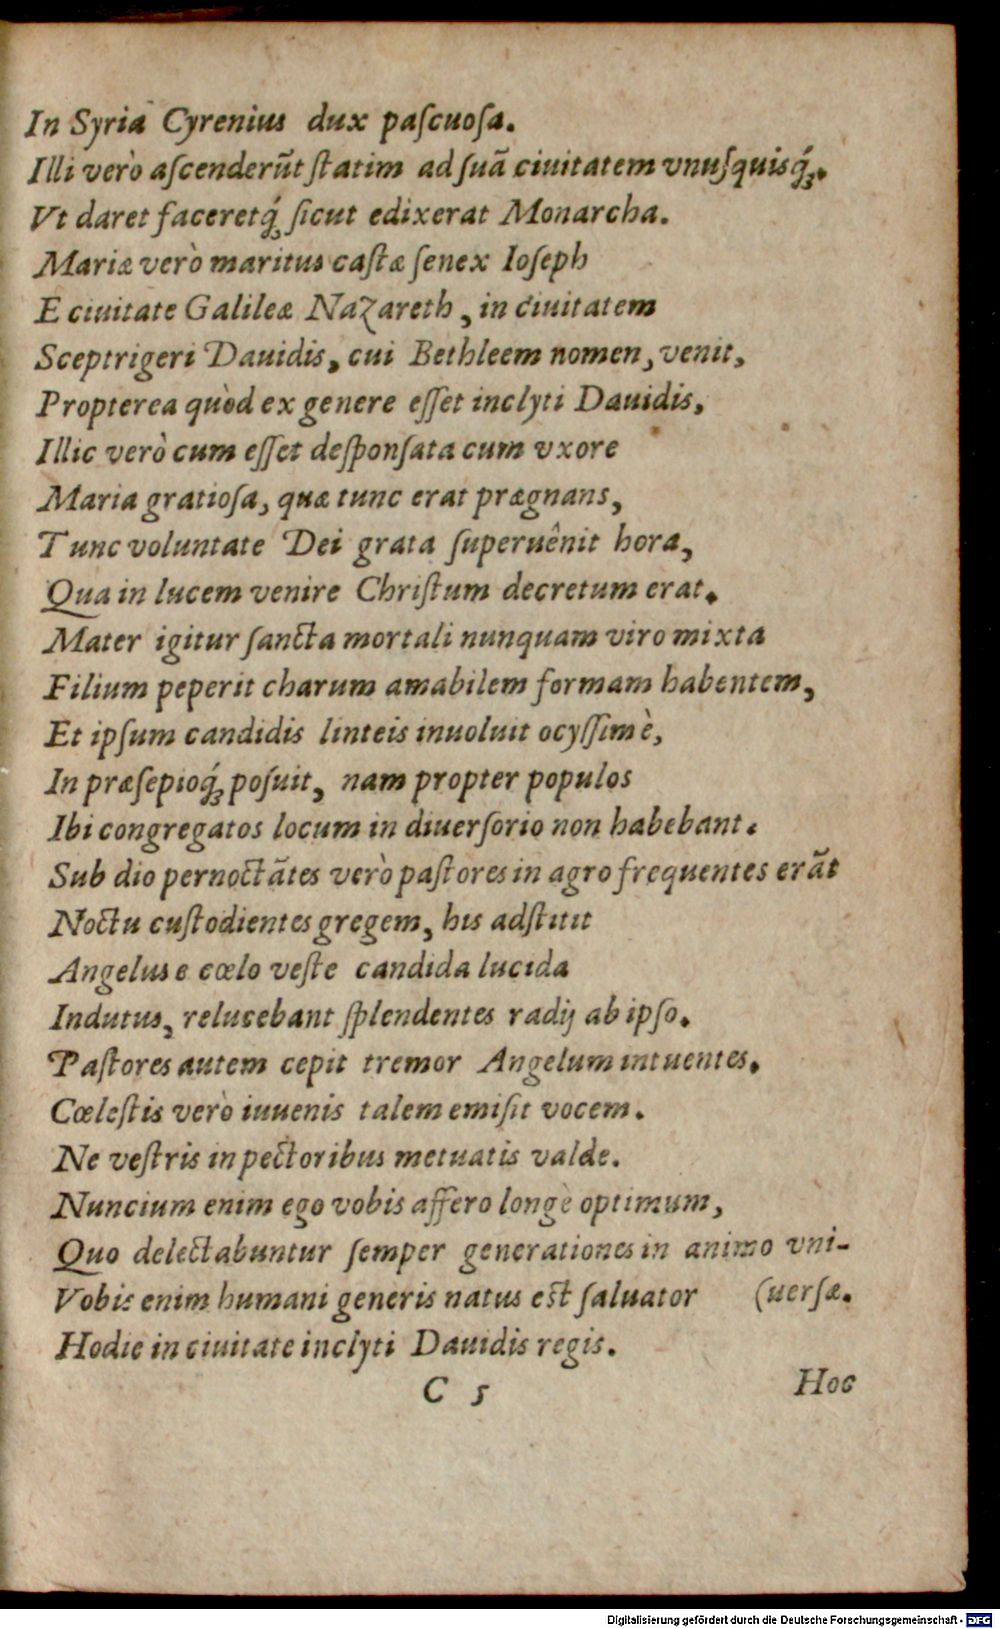 In Syria Cyrenius dux paſcuoſa.
Illi verò aſcenderũt ſtatim ad ſuã ciuitatem vnuſquisq́;.
Vt daret faceretq́; ſicut edixerat Monarcha.
Mariæ verò maritus caſtæ ſenex Ioſeph
E ciuitate Galileæ Nazareth, in ciuitatem
Sceptrigeri Dauidis, cui Bethleem nomen, venit,
Propterea quòd ex genere eſſet inclyti Dauidis,
Illic verò cum eſſet deſponſata cum vxore
Maria gratioſa, quæ tunc erat prægnans,
Tunc voluntate Dei grata ſuperuênit hora,
Qua in lucem venire Chriſtum decretum erat.
Mater igitur ſancta mortali nunquam viro mixta
Filium peperit charum amabilem formam habentem,
Et ipſum candidis linteis inuoluit ocyſſimè,
In præſepioq́; poſuit, nam propter populos
Ibi congregatos locum in diuerſorio non habebant.
Sub dio pernoctãtes verò paſtores in agro frequentes erãt
Noctu cuſtodientes gregem, his adſtitit
Angelus e cœlo veſte candida lucida
Indutus, relucebant ſplendentes radij ab ipſo.
Paſtores autem cepit tremor Angelum intuentes.
Cœleſtis verò iuuenis talem emiſit vocem.
Ne veſtris in pectoribus metuatis valde.
Nuncium enim ego vobis affero longè optimum,
Quo delectabuntur ſemper generationes in animo vni-
Vobis enim humani generis natus eſt ſaluator (uerſæ.
Hodie in ciuitate inclyti Dauidis regis.
C 5 Hoc
Digitalisierung gefördert durch die Deutsche Forschungsgemeinschaft - DFG